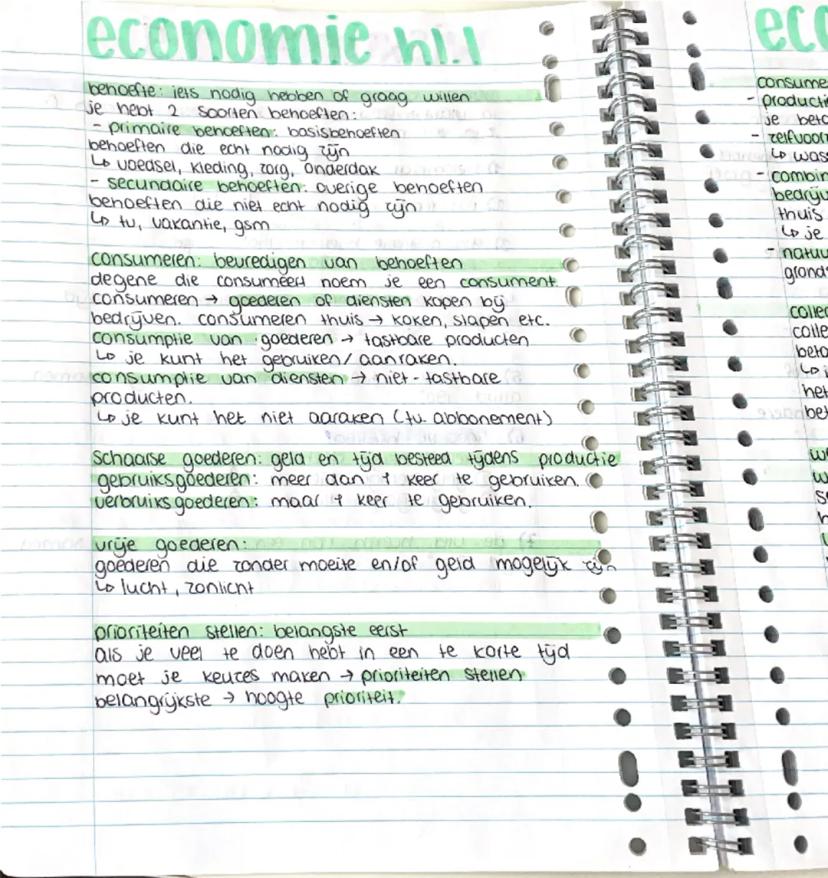 economie h1.1
behoefte: iets nodig hebben of graag willen
je hebt 2 soorten behoeften:
- primaire behoeften: basisbehoeften
behoeften die echt nodig zijn
↳ voedsel, kleding, zorg, onderdak
- secundaire behoeften: overige behoeften
behoeften die niet echt nodig zijn
↳ tv, vakantie, gsm
consumeren: bevredigen van behoeften
degene die consumeert noem je een consument
consumeren → goederen of diensten kopen bij
bedrijven. consumeren thuis → koken, slapen etc.
consumptie van goederen → tastbare producten
↳ je kunt het gebruiken/aanraken.
consumptie van diensten → niet-tastbare
producten.
↳ je kunt het niet aaraken (tv abbonement)
schaarse goederen: geld en tijd besteed tijdens productie
gebruiksgoederen: meer dan 1 keer te gebruiken.
verbruiksgoederen: maar 1 keer te gebruiken.
vrije goederen:
goederen die zonder moeite en/of geld mogelijk zijn
↳ lucht, zonlicht
prioriteiten stellen: belangste eerst
als je veel te doen hebt in een te korte tijd
moet je keuzes maken → prioriteiten stellen
belangrijkste → hoogte prioriteit.
eco
consume
- producti
je beta
- zelfvoor
↳ was
- combin
bedrijv
thuis
↳ je
- natuu
grond
collec
colle
beta
↳ i
het
bet